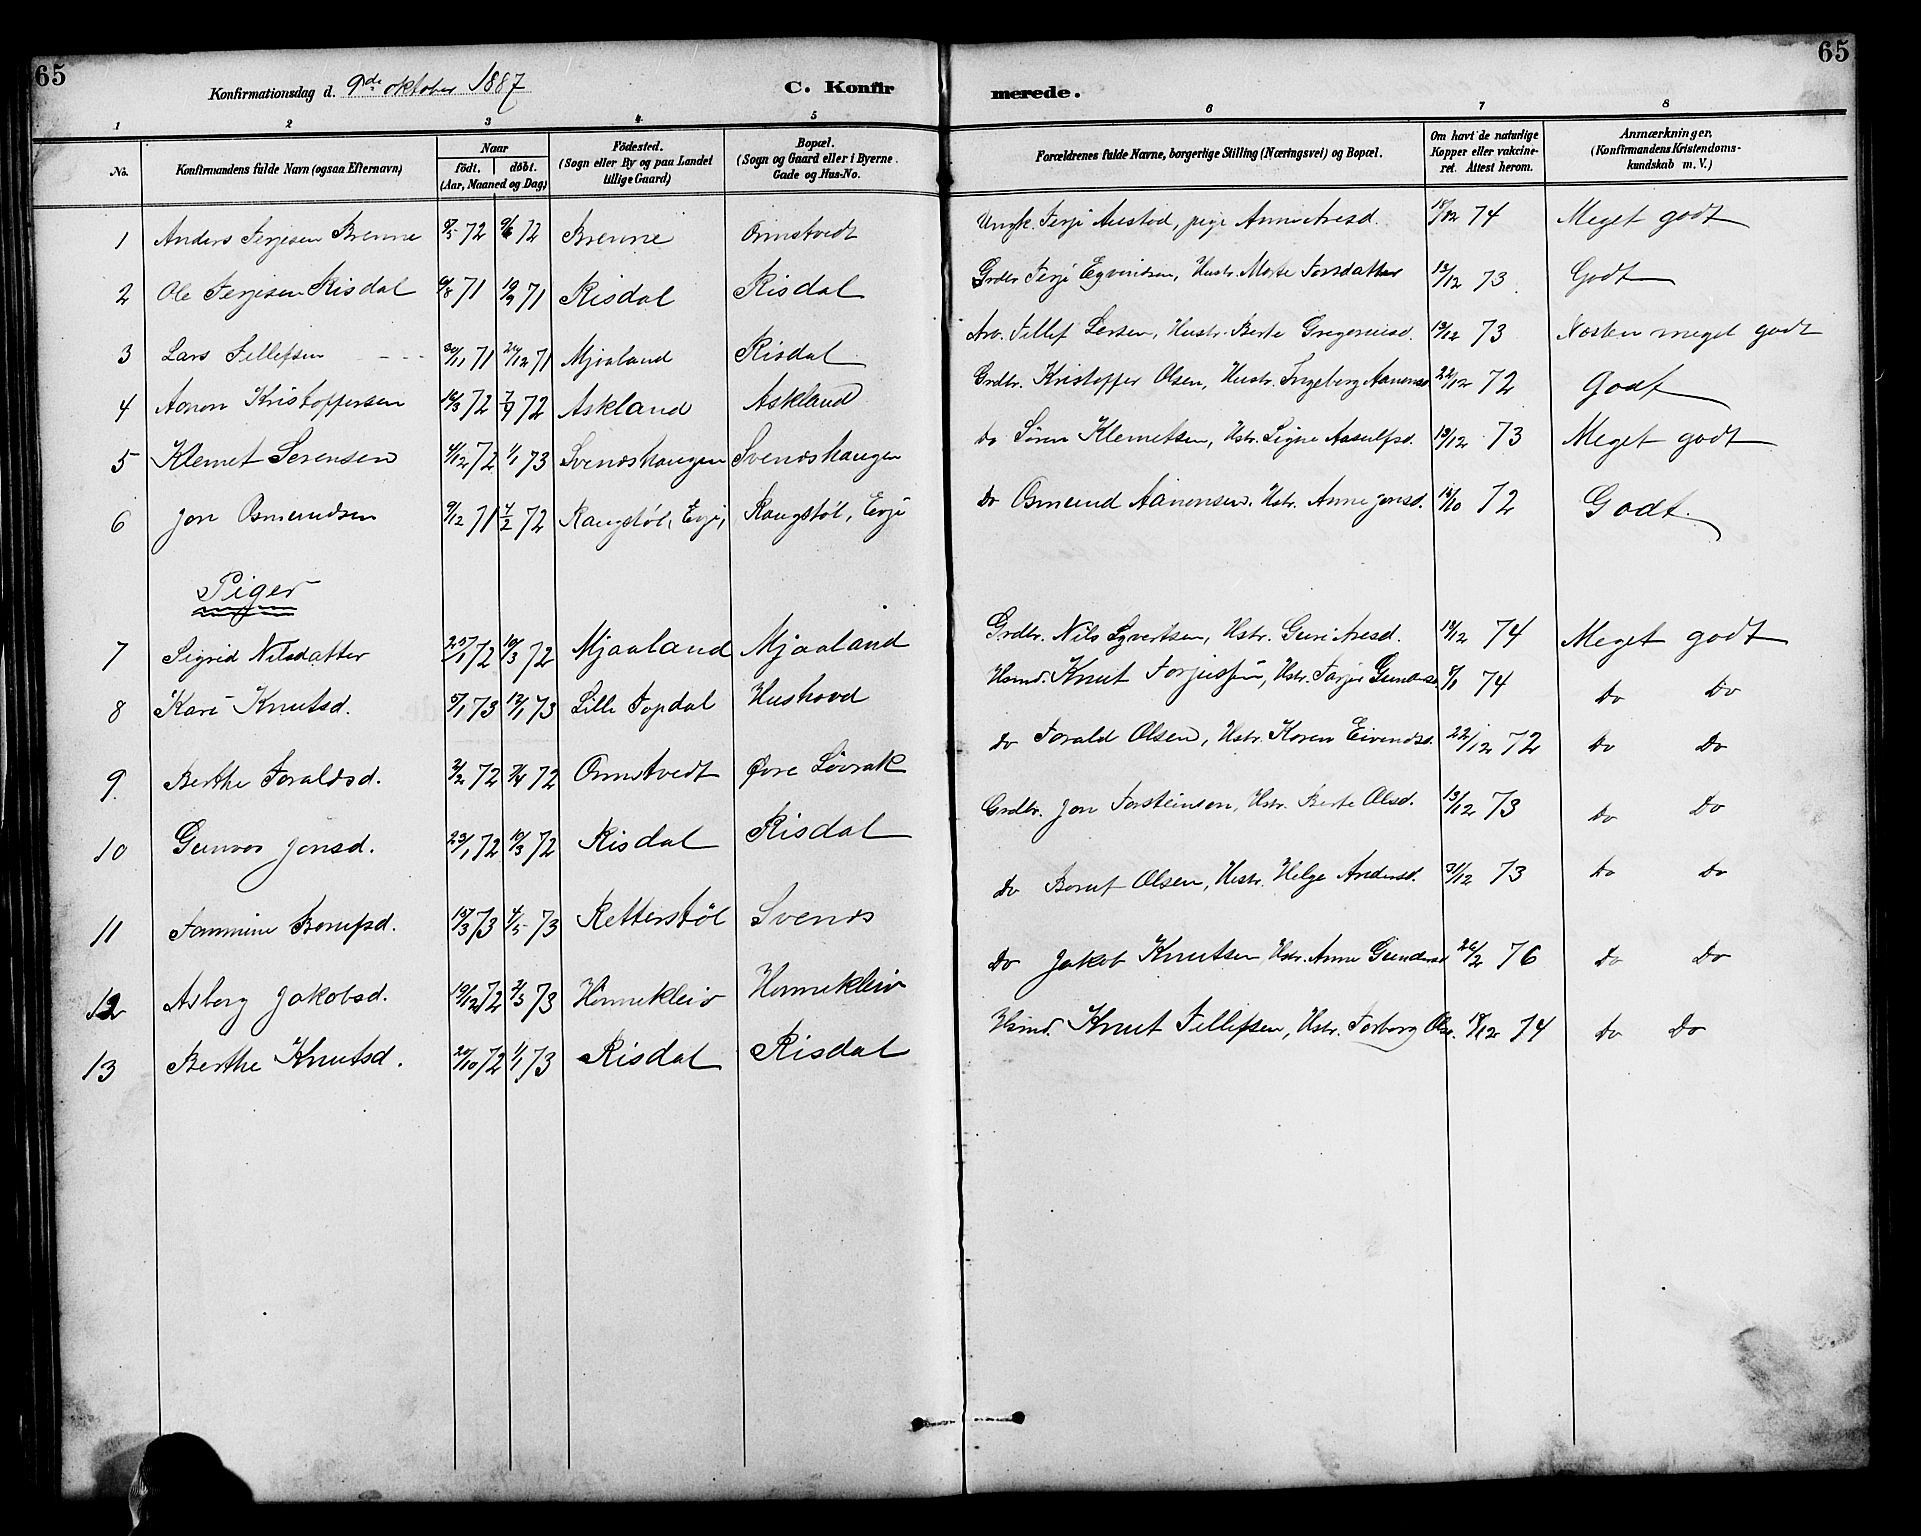 65
Konfirmationsdag d. 9de oktober 1887
C. Konfirmerede.
65
1 2 3 4 5 6 7 8
No. Konfirmandens fulde Navn (ogsaa Efternavn) Naar födt. döbt. (Aar, Maaned og Dag) Födested. (Sogn eller By og paa Landet tillige Gaard) Bopæl. (Sogn og Gaard eller i Byerne Gade og Hus-No. Forældrenes fulde Navne, borgerlige Stilling (Næringsvei) og Bopæl. Om havt de naturlige Kopper eller vakcineret. Attest herom. Anmærkninger. (Konfirmandens Kristendomskundskab m. V.)
1 Anders Terjesen Brenne 72 9/6 72 Brenne Ormstvedt Ungk. Terje Austad, pige Anne Aresd. 74 Meget godt
2 Ole Terjesen Risdal 6/8 71 71 Risdal Risdal Grdbr Terje Eyvindsen, Hustr. Marte Torsdatter 13/12 73 Godt
3 Lars Tellefsen 30/11 71 71 Mjaaland Risdal Arb. Tellef Larsen, Hustr. Berte Gregoriusd. 13/12 73 Næsten meget godt
4 Aanon Kristoffersen 72 72 Askland Askland Grdbr. Kristoffer Olsen, Hustr. Ingeborg Aanonsd 22/12 72 Godt
5 Klemet Sørensen 4/12 72 1/1 73 Svendshaugen Svendshaugen Do Søren Klemetsen, Hstr. Signe Aasulfsd. 13/12 73 Meget godt
6 Jon Osmundsen 9/12 71 4/2 72 Raugstøl, Evje, Raugstøl, Evje Do Osmund Aanonsen. Hstr. Anne Jonsd. 72 Godt.
Piger
7 Sigrid Nilsdatter 25/1 72 10/3 72 Mjaaland Mjaaland Grdbr. Nils Syvertsen, Hstr. Guri Aresd. 74 Meget godt
8 Kari Knutsd. 5/1 73 12/1 73 Lille Topdal Hushovd Hsmd. Knut Torjusen, Hstr. Torjer 74 Do Do
9. Berthe Toraldsd. 2/2 72 72 Ormstvedt Øvre Løvrak Do Torald Olsen, Hstr. Karen Eivindsd. 22/12 72 Do Do
10 Gunvor Jonsd. 23/1 72 10/3 72 Risdal Risdal Grdbr. Jon Torsteinson, Hstr. Berte Olsd. 13/12 73 Do Do
11 Tammine Borufsd. 73 4/5 73 Retterstøl Svends Do Boruf Olsen, Hustr. Helge Andersd. 31/12 73 Do Do
12 Asborg Jakobsd. 19/12 72 2/3 73 Hønnekleiv Hønnekleiv Do Jakob Knutsen Hstr. Anne Gundersd 26/2 76 Do Do
13 Berthe Knutsd. 72 1/1 73 Risdal Risdal Hsmd. Knut Tellefsen, Hstr. Torborg Olsd. 74 Do Do